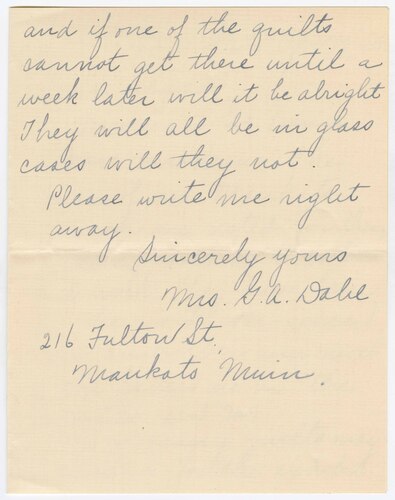 and if one of the quilts
cannot get there until a
week later will it be alright
They will all be in glass
cases will they not.
Please write me right
away.
Sincerely yours
Mrs. G.A. Dale
216 Fulton St.
Mankato Minn.